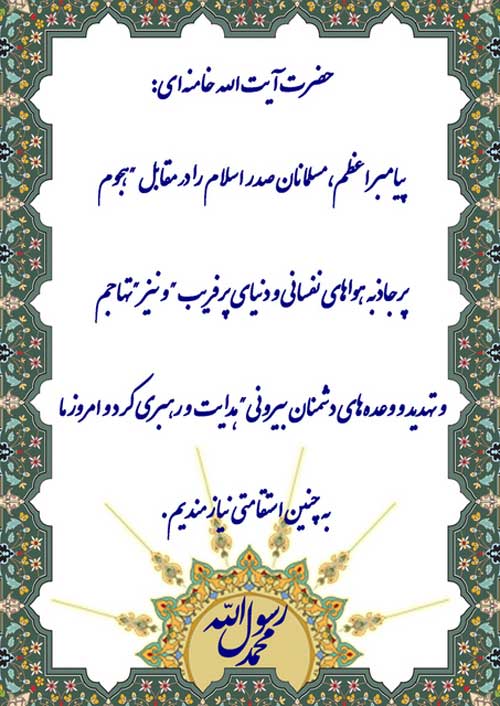 حضرت آیت الله خامنه ای:
پیامبر اعظم، مسلمانان صدر اسلام را در مقابل "هجوم
پر جاذبه هواهای نفسانی و دنیای پر فریب" و نیز "تهاجم
و تهدید و وعده های دشمنان بیرونی" هدایت و رهبری کرد و امروز ما
به چنین استقامتی نیازمندیم.
محمد رسول الله